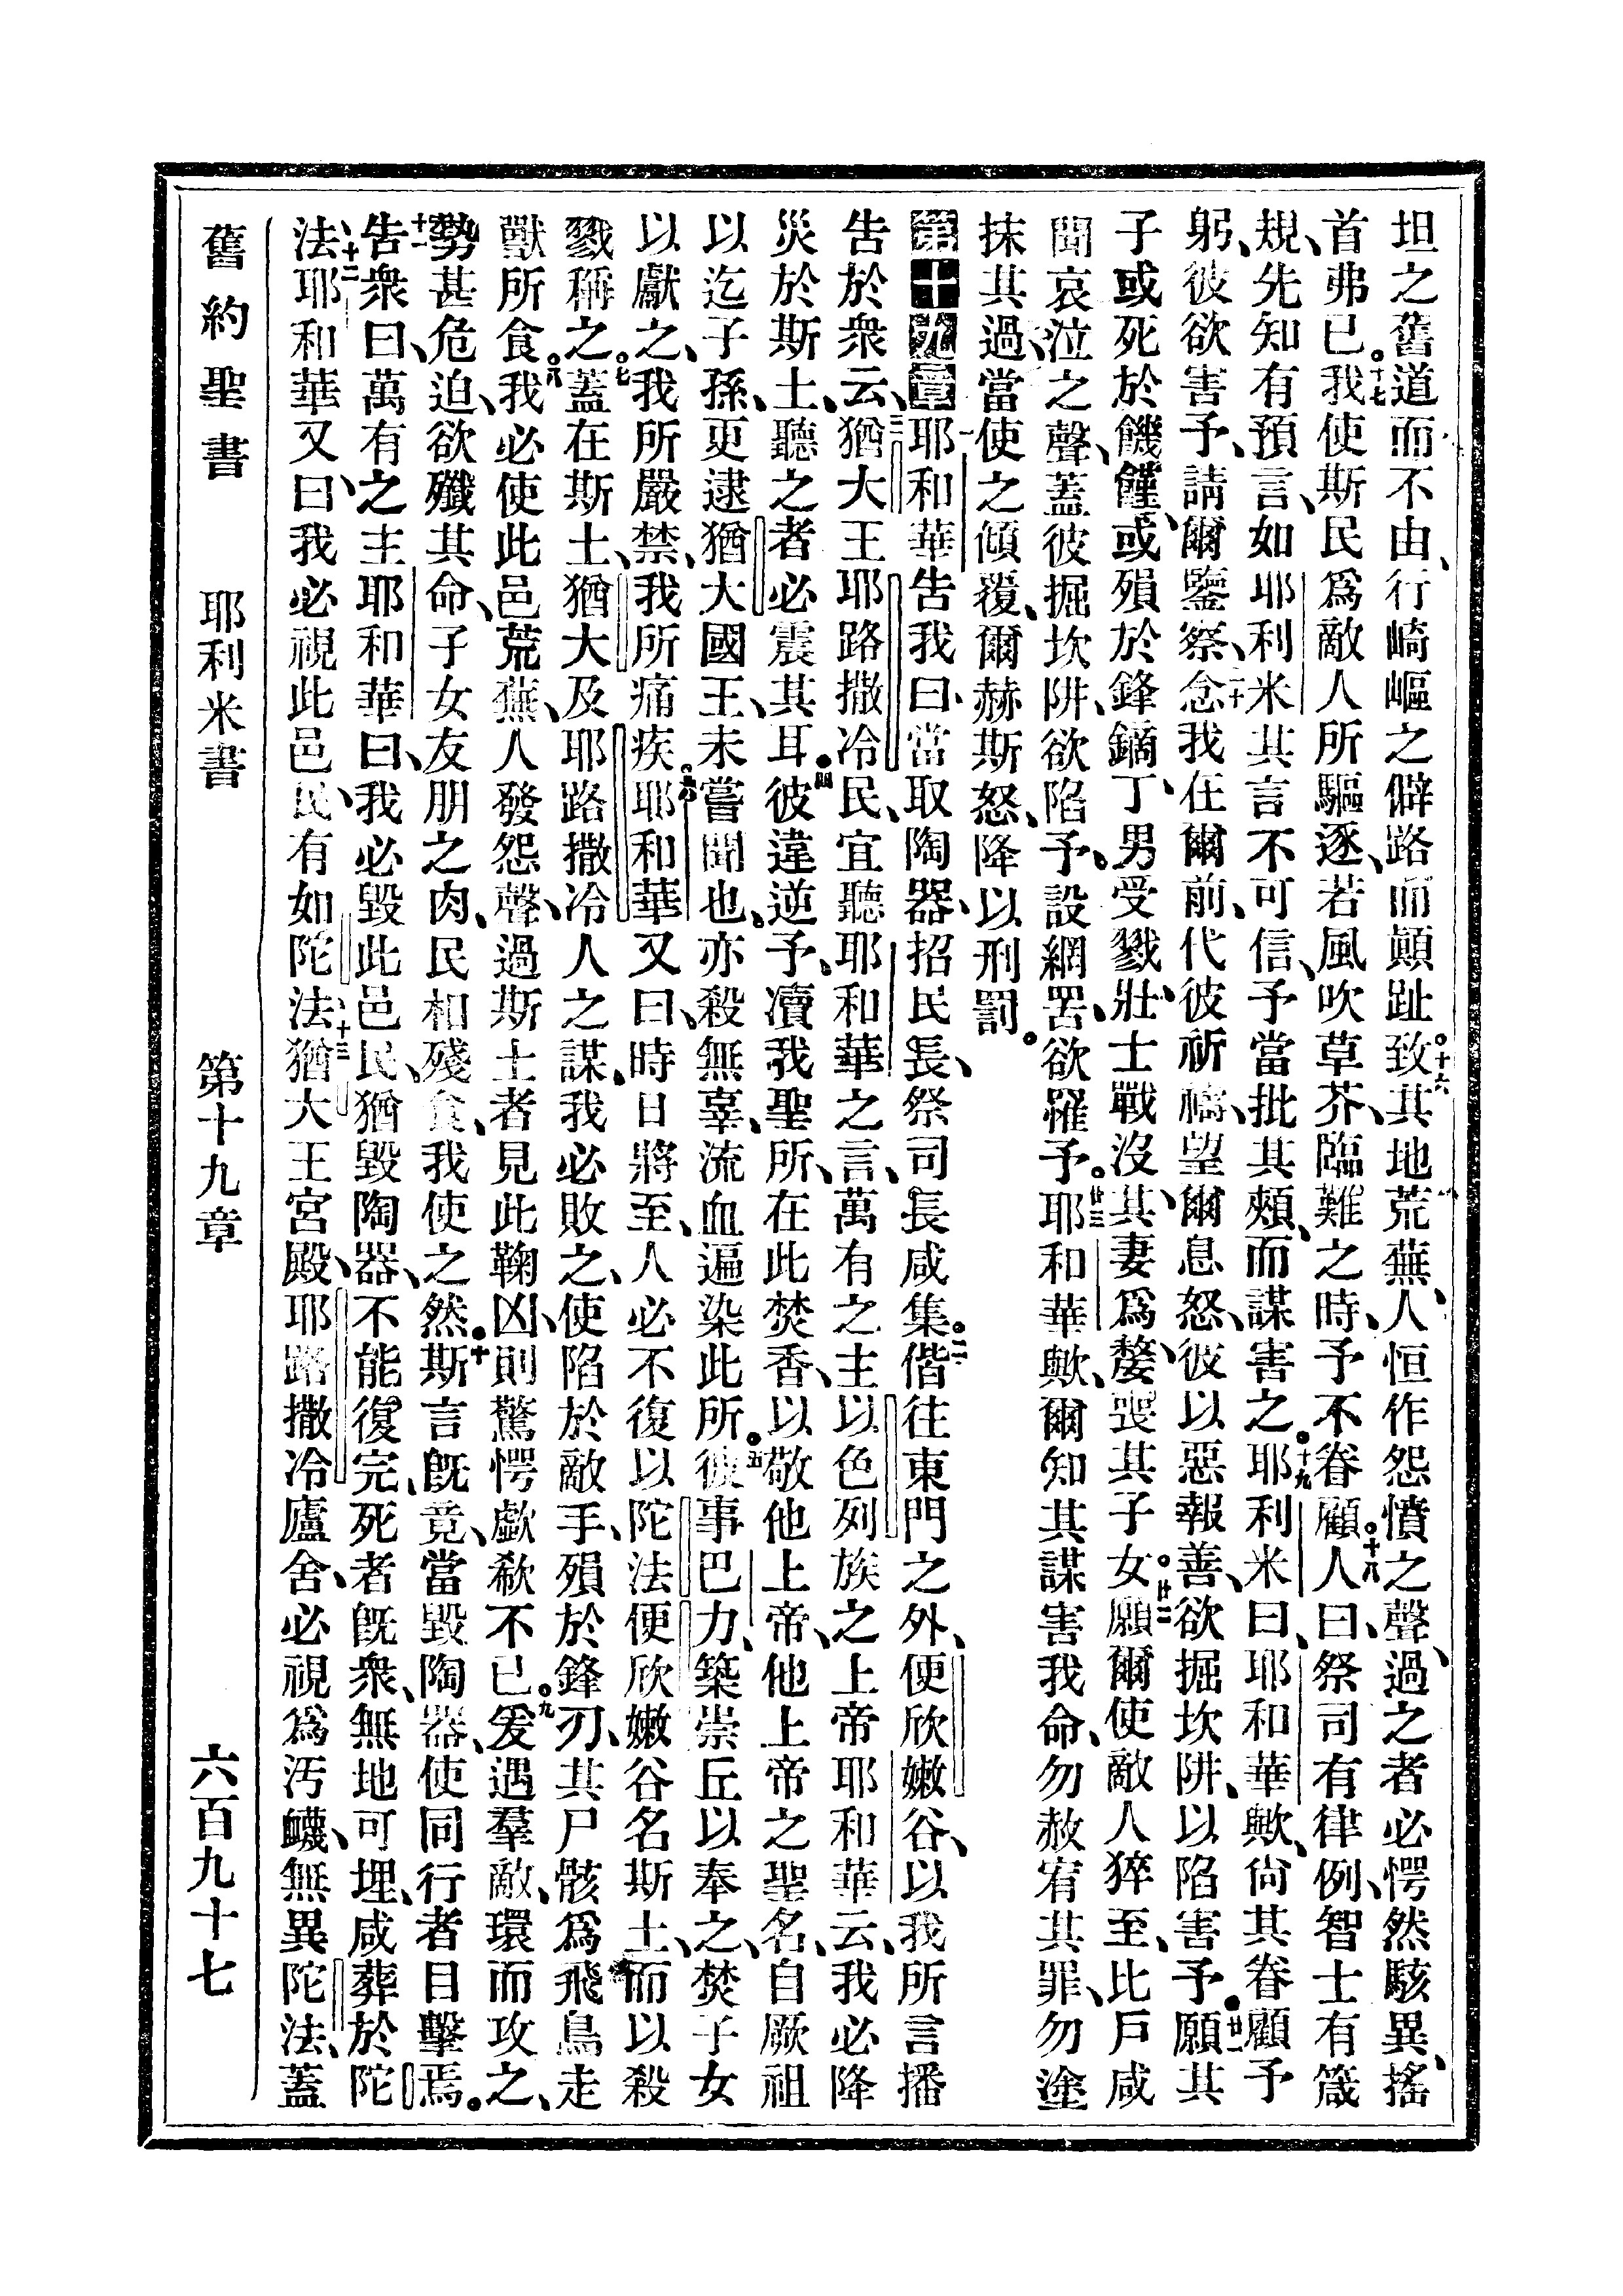 坦之舊道而不由、行崎嶇之僻路而顛趾。十六致其地荒蕪、人恒作怨憤之聲、過之者必愕然駭異、搖
首弗已。十七我使斯民爲敵人所驅逐、若風吹草芥、臨難之時、予不眷顧。十八人曰、祭司有律例、智士有箴
規、先知有預言、如耶利米其言不可信、予當批其頰、而謀害之。十九耶利米曰、耶和華歟、尙其眷顧予
躬、彼欲害予、請爾鑒察、二十念我在爾前、代彼祈禱、望爾息怒、彼以惡報善、欲掘坎阱、以陷害予。廿一願其
子或死於饑饉、或殞於鋒鏑、丁男受戮、壯士戰沒、其妻爲嫠、喪其子女。廿二願爾使敵人猝至、比戶咸
聞哀泣之聲、蓋彼掘坎阱、欲陷予、設網罟、欲羅予。廿三耶和華歟、爾知其謀害我命、勿赦宥其罪、勿塗
抹其過、當使之傾覆、爾赫斯怒、降以刑罰。
第十九章 一耶和華告我曰、當取陶器、招民長、祭司長咸集。二偕往東門之外、便欣嫩谷、以我所言播
告於衆云、三猶大王耶路撒冷民、宜聽耶和華之言、萬有之主以色列族之上帝耶和華云、我必降
災於斯土、聽之者必震其耳。四彼違逆予、凟我聖所、在此焚香、以敬他上帝、他上帝之聖名、自厥祖
以迄子孫、更逮猶大國王、未嘗聞也、亦殺無辜、流血遍染此所。五彼事巴力、築崇丘以奉之、焚子女
以獻之、我所嚴禁、我所痛疾。六耶和華又曰、時日將至、人必不復以陀法便欣嫩谷名斯土、而以殺
戮稱之。七蓋在斯土、猶大及耶路撒冷人之謀、我必敗之、使陷於敵手、殞於鋒刃、其尸骸爲飛鳥走
獸所食。八我必使此邑荒蕪、人發怨聲、過斯土者見此鞠凶、則驚愕歔欷不已。九爰遇羣敵、環而攻之、
勢甚危迫、欲殲其命、子女友朋之肉、民相殘食、我使之然。十斯言旣竟、當毀陶器、使同行者目擊焉。
十一告衆曰、萬有之主耶和華曰、我必毀此邑民、猶毀陶器、不能復完、死者旣衆、無地可埋、咸葬於陀
法、十二耶和華又曰、我必視此邑民、有如陀法、十三猶大王宮殿、耶路撒冷廬舍、必視爲汚衊、無異陀法、蓋
舊約聖書 耶利米書 第十九章 六百九十七